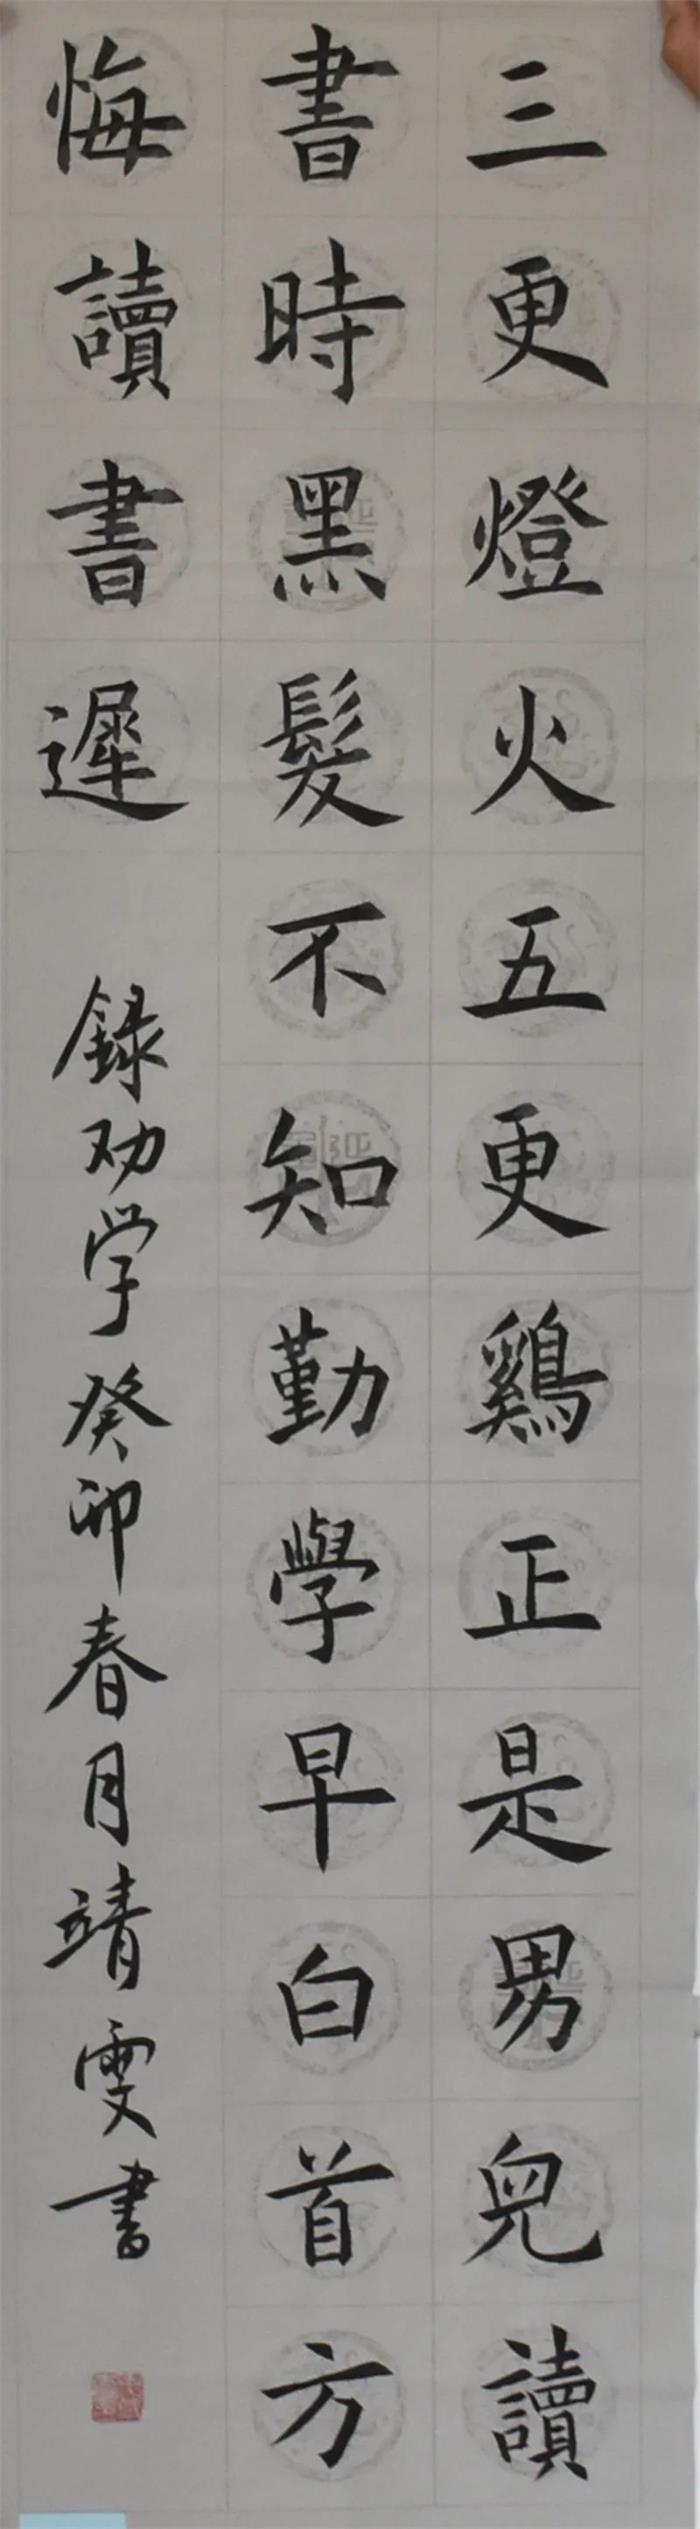 三更燈火五更鷄正是男兒讀
書時黑髮不知勤學早白首方
悔讀書遲
録劝学癸卯春月靖雯書